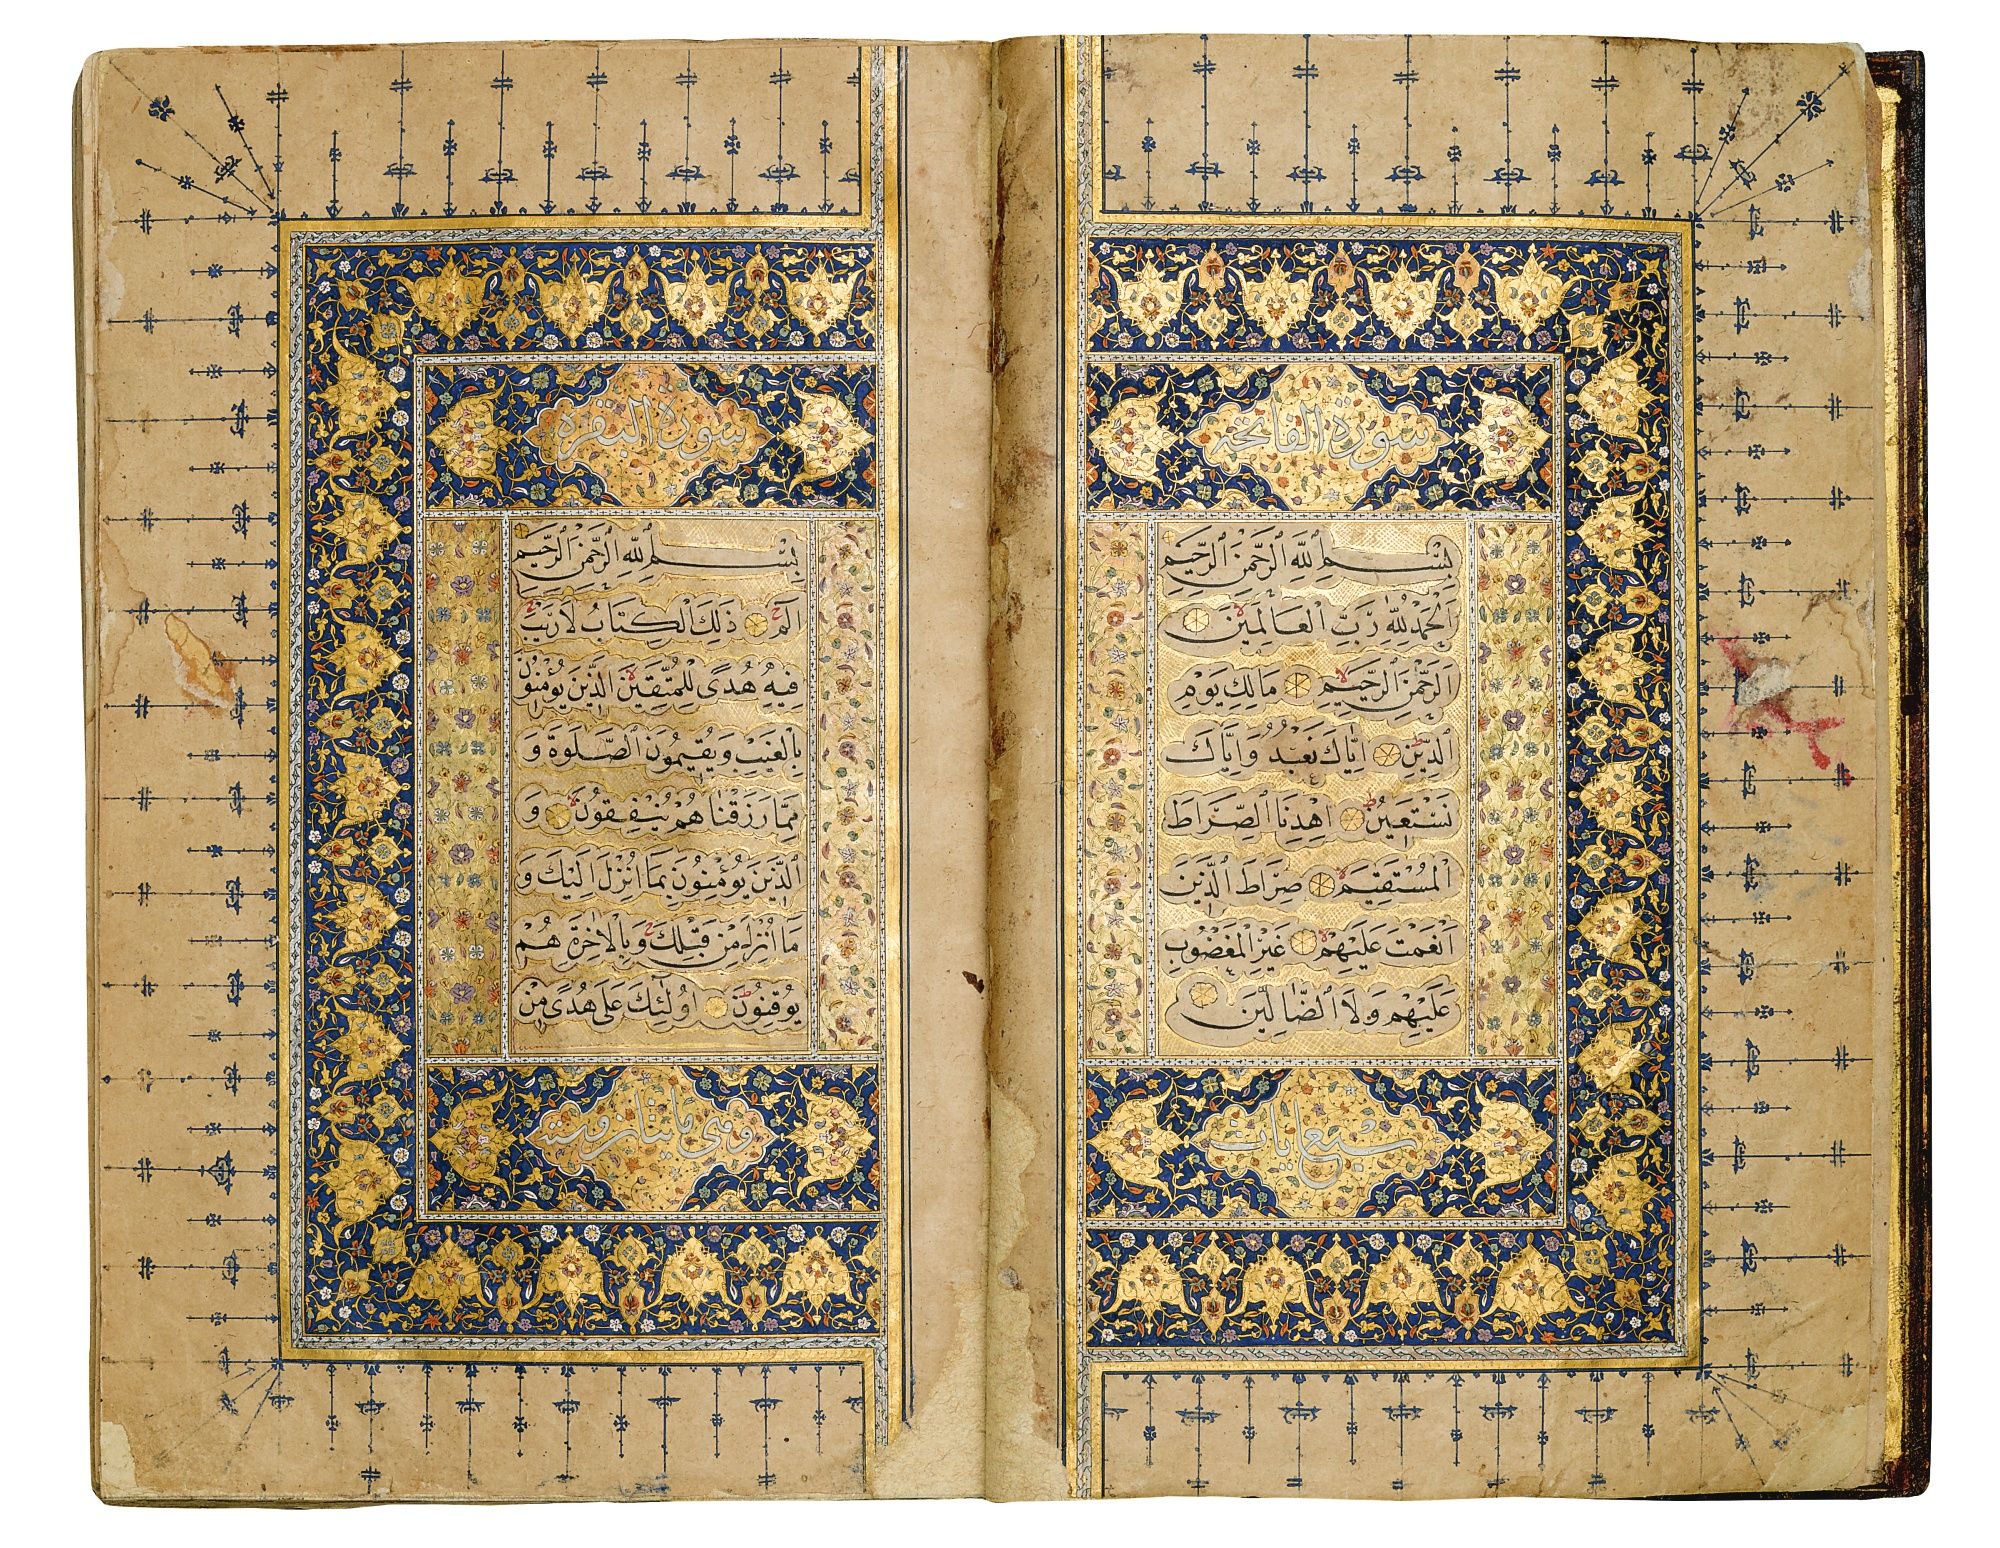 سورة الفاتحة
بِسْمِ ٱللَّهِ ٱلرَّحْمٰنِ ٱلرَّحِيمِ
اَلْحَمْدُ لِلّٰهِ رَبِّ الْعَالَمِينَ
اَلرَّحْمٰنِ ٱلرَّحِيمِ مَالِكِ يَوْمِ
ٱلدِّينِ اِيَّاكَ نَعْبُدُ وَاِيَّاكَ
نَسْتَعِينُ اِهْدِنَا ٱلصِّرَاطَ
الْمُسْتَقِيمَ صِرَاطَ ٱلَّذِينَ
اَنْعَمْتَ عَلَيْهِمْ غَيْرِ الْمَغْضُوبِ
عَلَيْهِمْ وَلَا ٱلضَّالِّينَ
سبع ايات
سورة البقرة
بِسْمِ ٱللَّهِ ٱلرَّحْمٰنِ ٱلرَّحِيمِ
الم ذٰلِكَ الْكِتَابُ لَا رَيْبَ
فِيهِ هُدًى لِلْمُتَّقِينَ الَّذِينَ يُؤْمِنُونَ
بِالْغَيْبِ وَيُقِيمُونَ ٱلصَّلٰوةَ وَ
مِمَّا رَزَقْنَاهُمْ يُنْفِقُونَ وَ
ٱلَّذِينَ يُؤْمِنُونَ بِمَا اُنْزِلَ اِلَيْكَ وَ
مَا اُنْزِلَ مِنْ قَبْلِكَ وَبِالْاٰخِرَةِ هُمْ
يُوقِنُونَ اُولٰئِكَ عَلٰى هُدًى مِنْ
وهي مايتا وسته